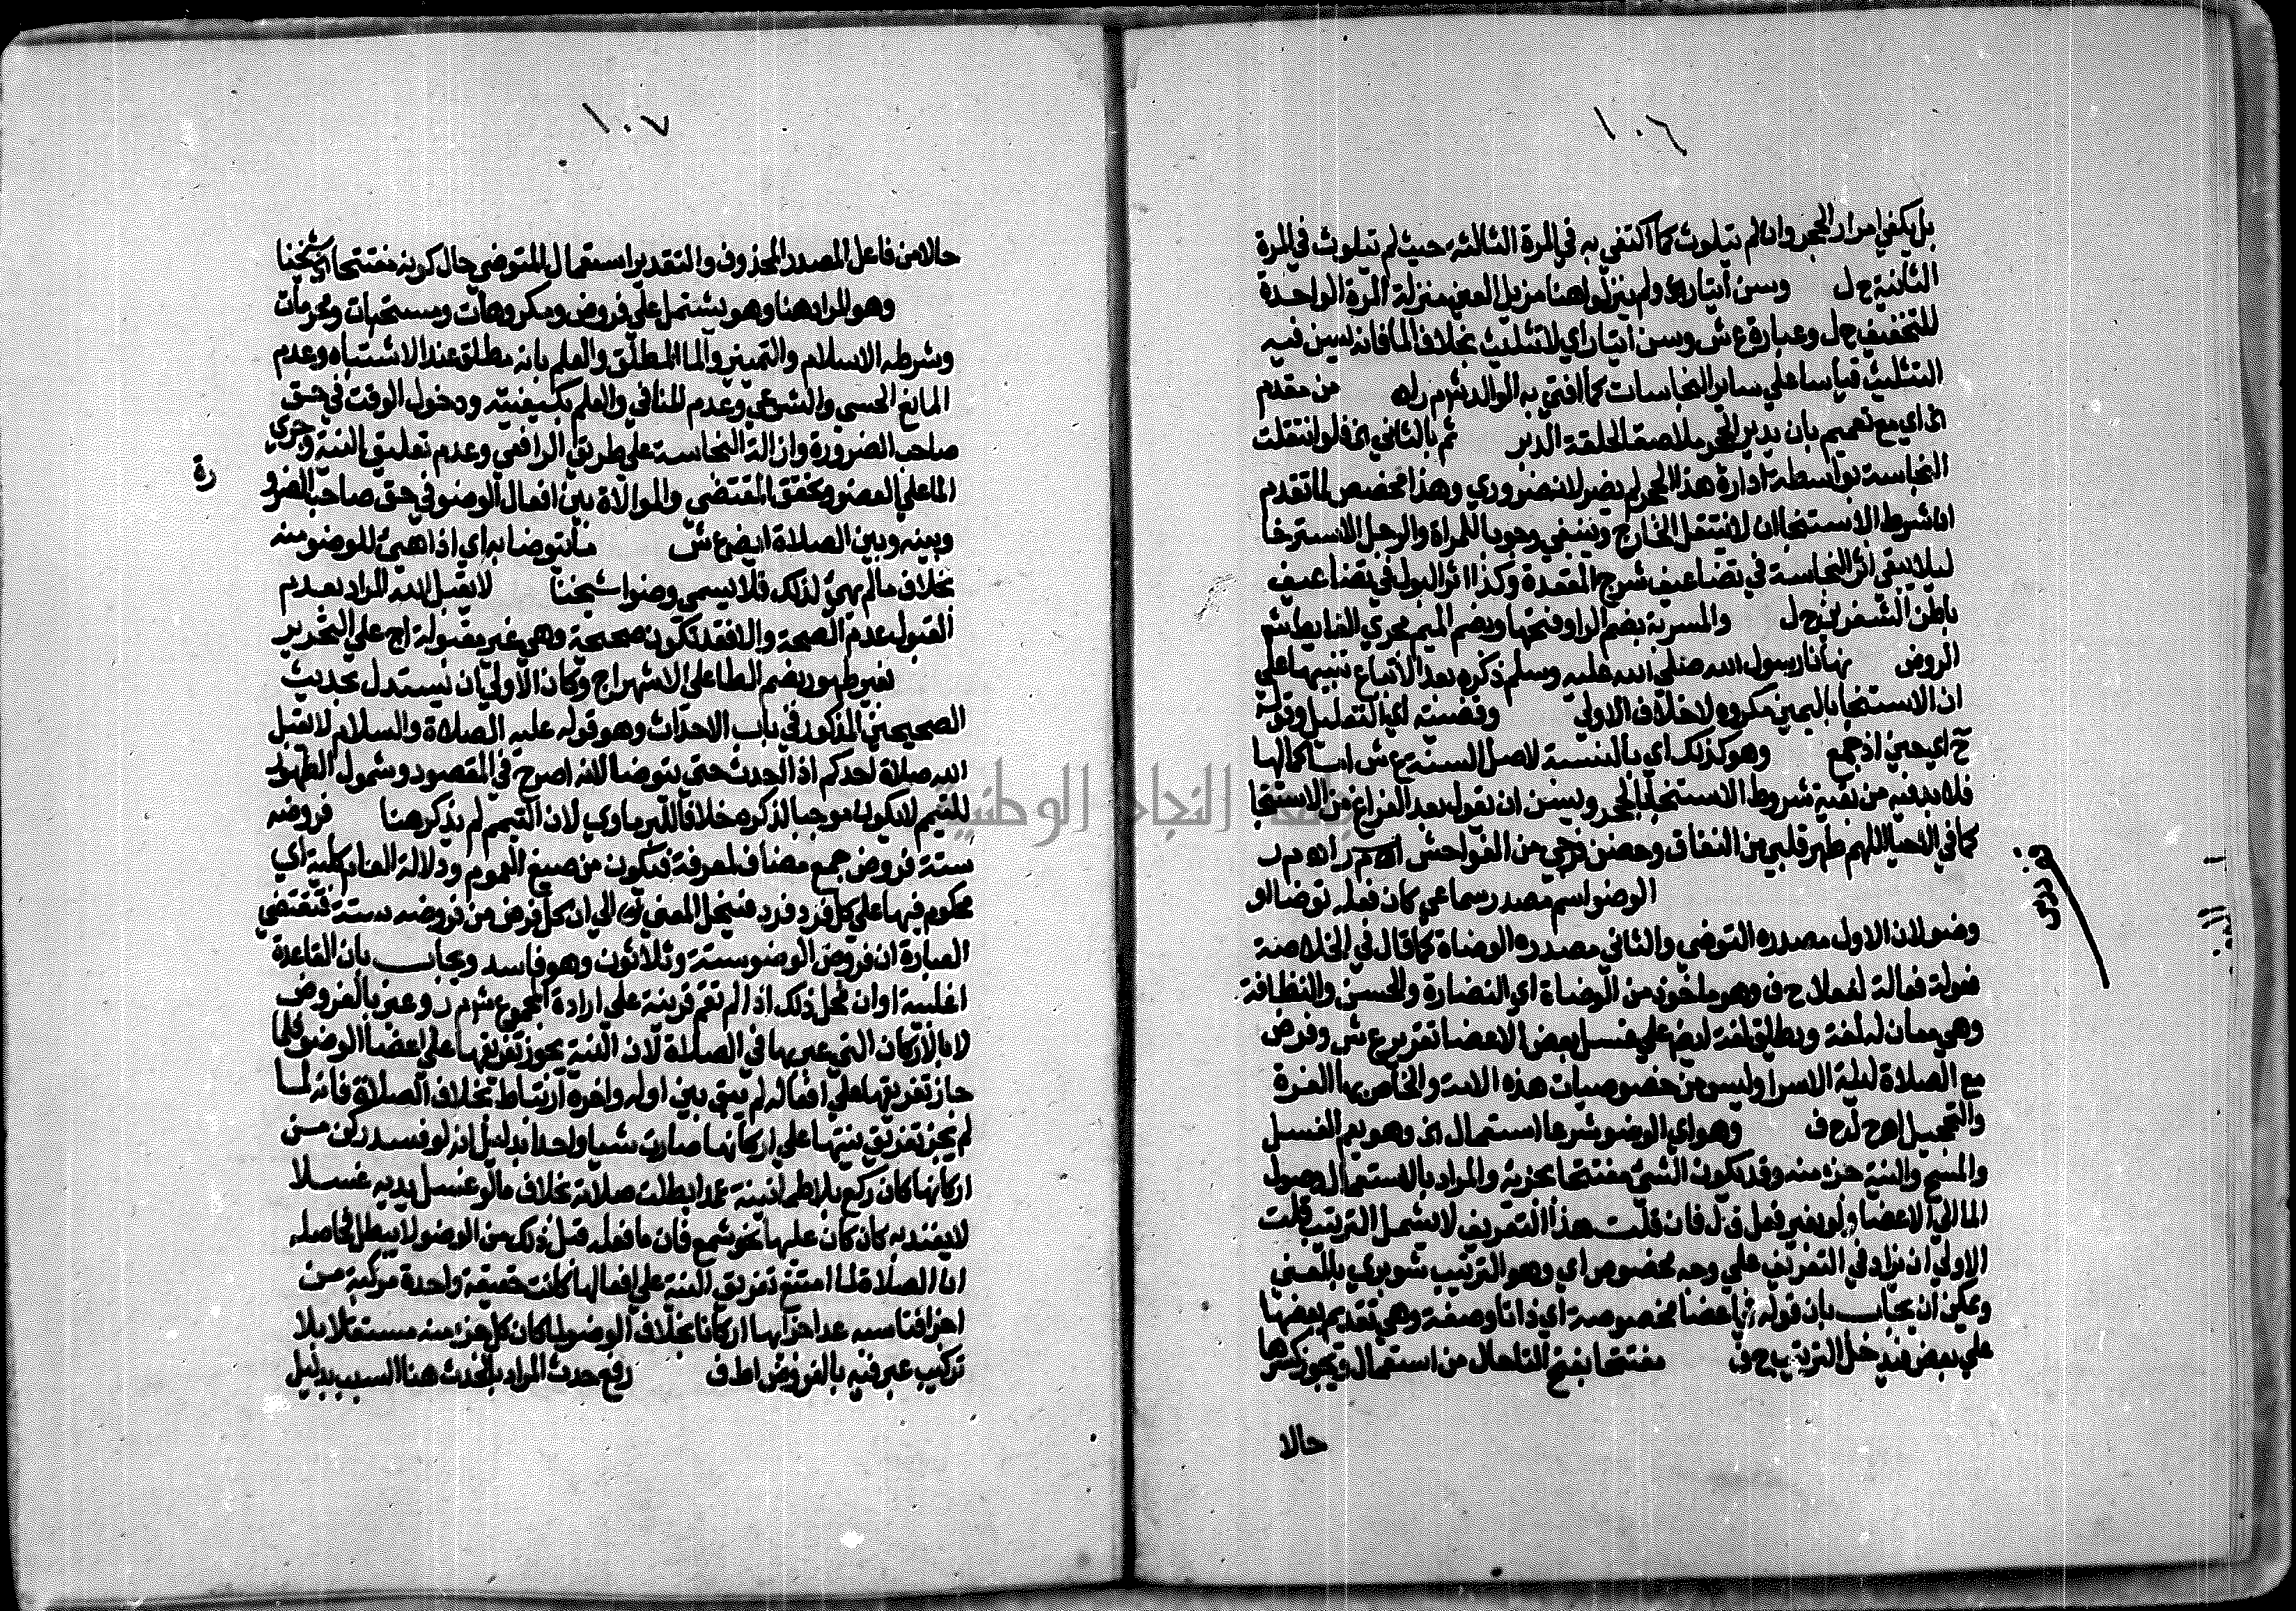 ١٠٦
بل يكفي امرار الحجر وان لم يتلوث كما اكتفي به في المرة الثالثة حيث لم يتلوث في المرة
الثانية ح ل وسن ايتاره ولم ينزلوا هنا مزيل العين منزلة المرة الواحدة
للتخفيف ح ل وعبارة ع ش وسن ايتار اي لا تثليث بخلاف الما فانه يسن فيه
التثليث قياسا علي ساير النجاسات كما افتي به الوالد ش م ر اه من مقدم
الخ اي مع تعميم بان يدير الحجر ملاصقا لحلقة الدبر ثم بالثاني الخ فلو انتقلت
النجاسة بواسطة ادارة هذا الحجر لم يضر لانه ضروري وهذا مخصص لما تقدم
ان شرط الاستنجا ان لا ينتقل الخارج وينبغي وجوبا للمراة والرجل الاسترخا
ليلا يبقي اثر النجاسة في تضاعيف شرج المقعدة وكذا اثر البول في تضاعيف
باطن الشفرين ح ل والمسربة بضم الرا وفتحها وبضم الميم مجري الغايط شع
الروض نهانا رسول الله صلي الله عليه وسلم ذكره بعد الاتباع تنبيها علي
ان الاستنجا باليمين مكروه لا خلاف الاولي وقضيته اي التعليل وقوله
ح اي حين اذ جمع وهو كذلك اي بالنسبة لاصل السنة ع ش اما كمالها
فلا بد فيه من بقية شروط الاستنجا بالحجر ويسن ان يقول بعد الفراغ من الاستنجا
كما في الاحيا اللهم طهر قلبي من النفاق وحصن فرجي من الفواحش
الوضو اسم مصدر سماعي كان فعله توضا او
وضو لان الاول مصدره التوضي والثاني مصدره الوضاة كما قال في الخلاصة
فعولة فعالة لفعلا ح ف وهو ماخوذ من الوضاة اي النضارة والحسن والنظافة
وهي معان له لغة ويطلق لغة ايضا علي غسل بعض الاعضا تقرير ع ش وفرض
مع الصلاة ليلة الاسرا وليس من خصوصيات هذه الامة والخاص بها الغرة
والتحجيل اه ح ل ح ف وهو اي الوضو شرعا استعمال الخ وهو يعم الغسل
والمسح والنية جزء منه وقد يكون الشيء مفتتحا بجزئه والمراد بالاستعمال وصول
الما الي الاعضا ولو بغير فعل ق ل فان قلت هذا التعريف لا يشمل الترتيب قلت
الاولي ان يزاد في التعريف علي وجه مخصوص اي وهو الترتيب شوبري بالمعني
ويمكن ان يجاب بان قوله في اعضا مخصوصة اي ذاتا وصفة وهي تقديم بعضها
علي بعض فيدخل الترتيب ح ف مفتتحا بفتح التا حال من استعمال ويجوز كسرها
حالا
١٠٧
حالا من فاعل المصدر المحذوف والتقدير استعمال المتوضي حال كونه مفتتحا شيخنا
وهو المراد هنا وهو يشتمل علي فروض ومكروهات ومستحبات ومحرمات
وشرطه الاسلام والتمييز والما المطلق والعلم بانه مطلق عند الاشتباه وعدم
المانع الحسي والشرعي وعدم المنافي والعلم بكيفيته ودخول الوقت في حق
صاحب الضرورة وازالة النجاسة علي طريق الرافعي وعدم تعليق النية وجري
الما علي العضو وتحقق المقتضي والموالاة بين افعال الوضو في حق صاحب الضرو
رة
وبينه وبين الصلاة ايضا ع ش ما يتوضا به اي اذا هيئ للوضو منه
بخلاف ما لم يهيئ لذلك فلا يسمي وضوا شيخنا لا يقبل الله المراد بعدم
القبول عدم الصحة والا فقد تكون صحيحة وهي غير مقبولة اج علي التحرير
بغير طهور بضم الطا علي الاشهر اج وكان الاولي ان يستدل بحديث
الصحيحين المذكور في باب الاحداث وهو قوله عليه الصلاة والسلام لا يقبل
الله صلاة احدكم اذا احدث حتي يتوضا لانه اصرح في المقصود وشمول الطهور
للتيمم لا يكون موجبا لذكره خلافا للبرماوي لان التيمم لم يذكر هنا فروضه
ستة فروض جمع مضاف لمعرفة فيكون من صيغ العموم ودلالة العام كلية اي
محكوم فيها علي كل فرد فرد فينحل المعني الي ان كل فرض من فروضه ستة فتقتضي
العبارة ان فروض الوضو ستة وثلاثون وهو فاسد ويجاب بان القاعدة
اغلبية او ان محل ذلك اذا لم تقم قرينة علي ارادة المجموع ش م ر وعبر بالفروض
لا بالاركان التي عبر بها في الصلاة لان النية يجوز تفريقها علي اعضا الوضو فلما
جاز تفريقها علي افعاله لم يبق بين اوله واخره ارتباط بخلاف الصلاة فانه لما
لم يجز تفريق نيتها علي اركانها صارت شيا واحدا بدليل انه لو فسد ركن من
اركانها كان ركع بلا طمانينة عمدا بطلت صلاته بخلاف ما لو غسل يديه غسلا
لا يعتد به كان كان عليها نحو شمع فان ما فعله قبل ذلك من الوضو لا يبطل فحاصله
ان الصلاة لما امتنع تفريق النية علي افعالها كانت حقيقة واحدة مركبة من
اجزا فناسب عد اجزايها اركانا بخلاف الوضو لما كان كل جزء منه مستقلا بلا
تركيب عبر فيه بالفروض اط ف رفع حدث المراد بالحدث هنا السبب بدليل
جامعة النجاح الوطنية